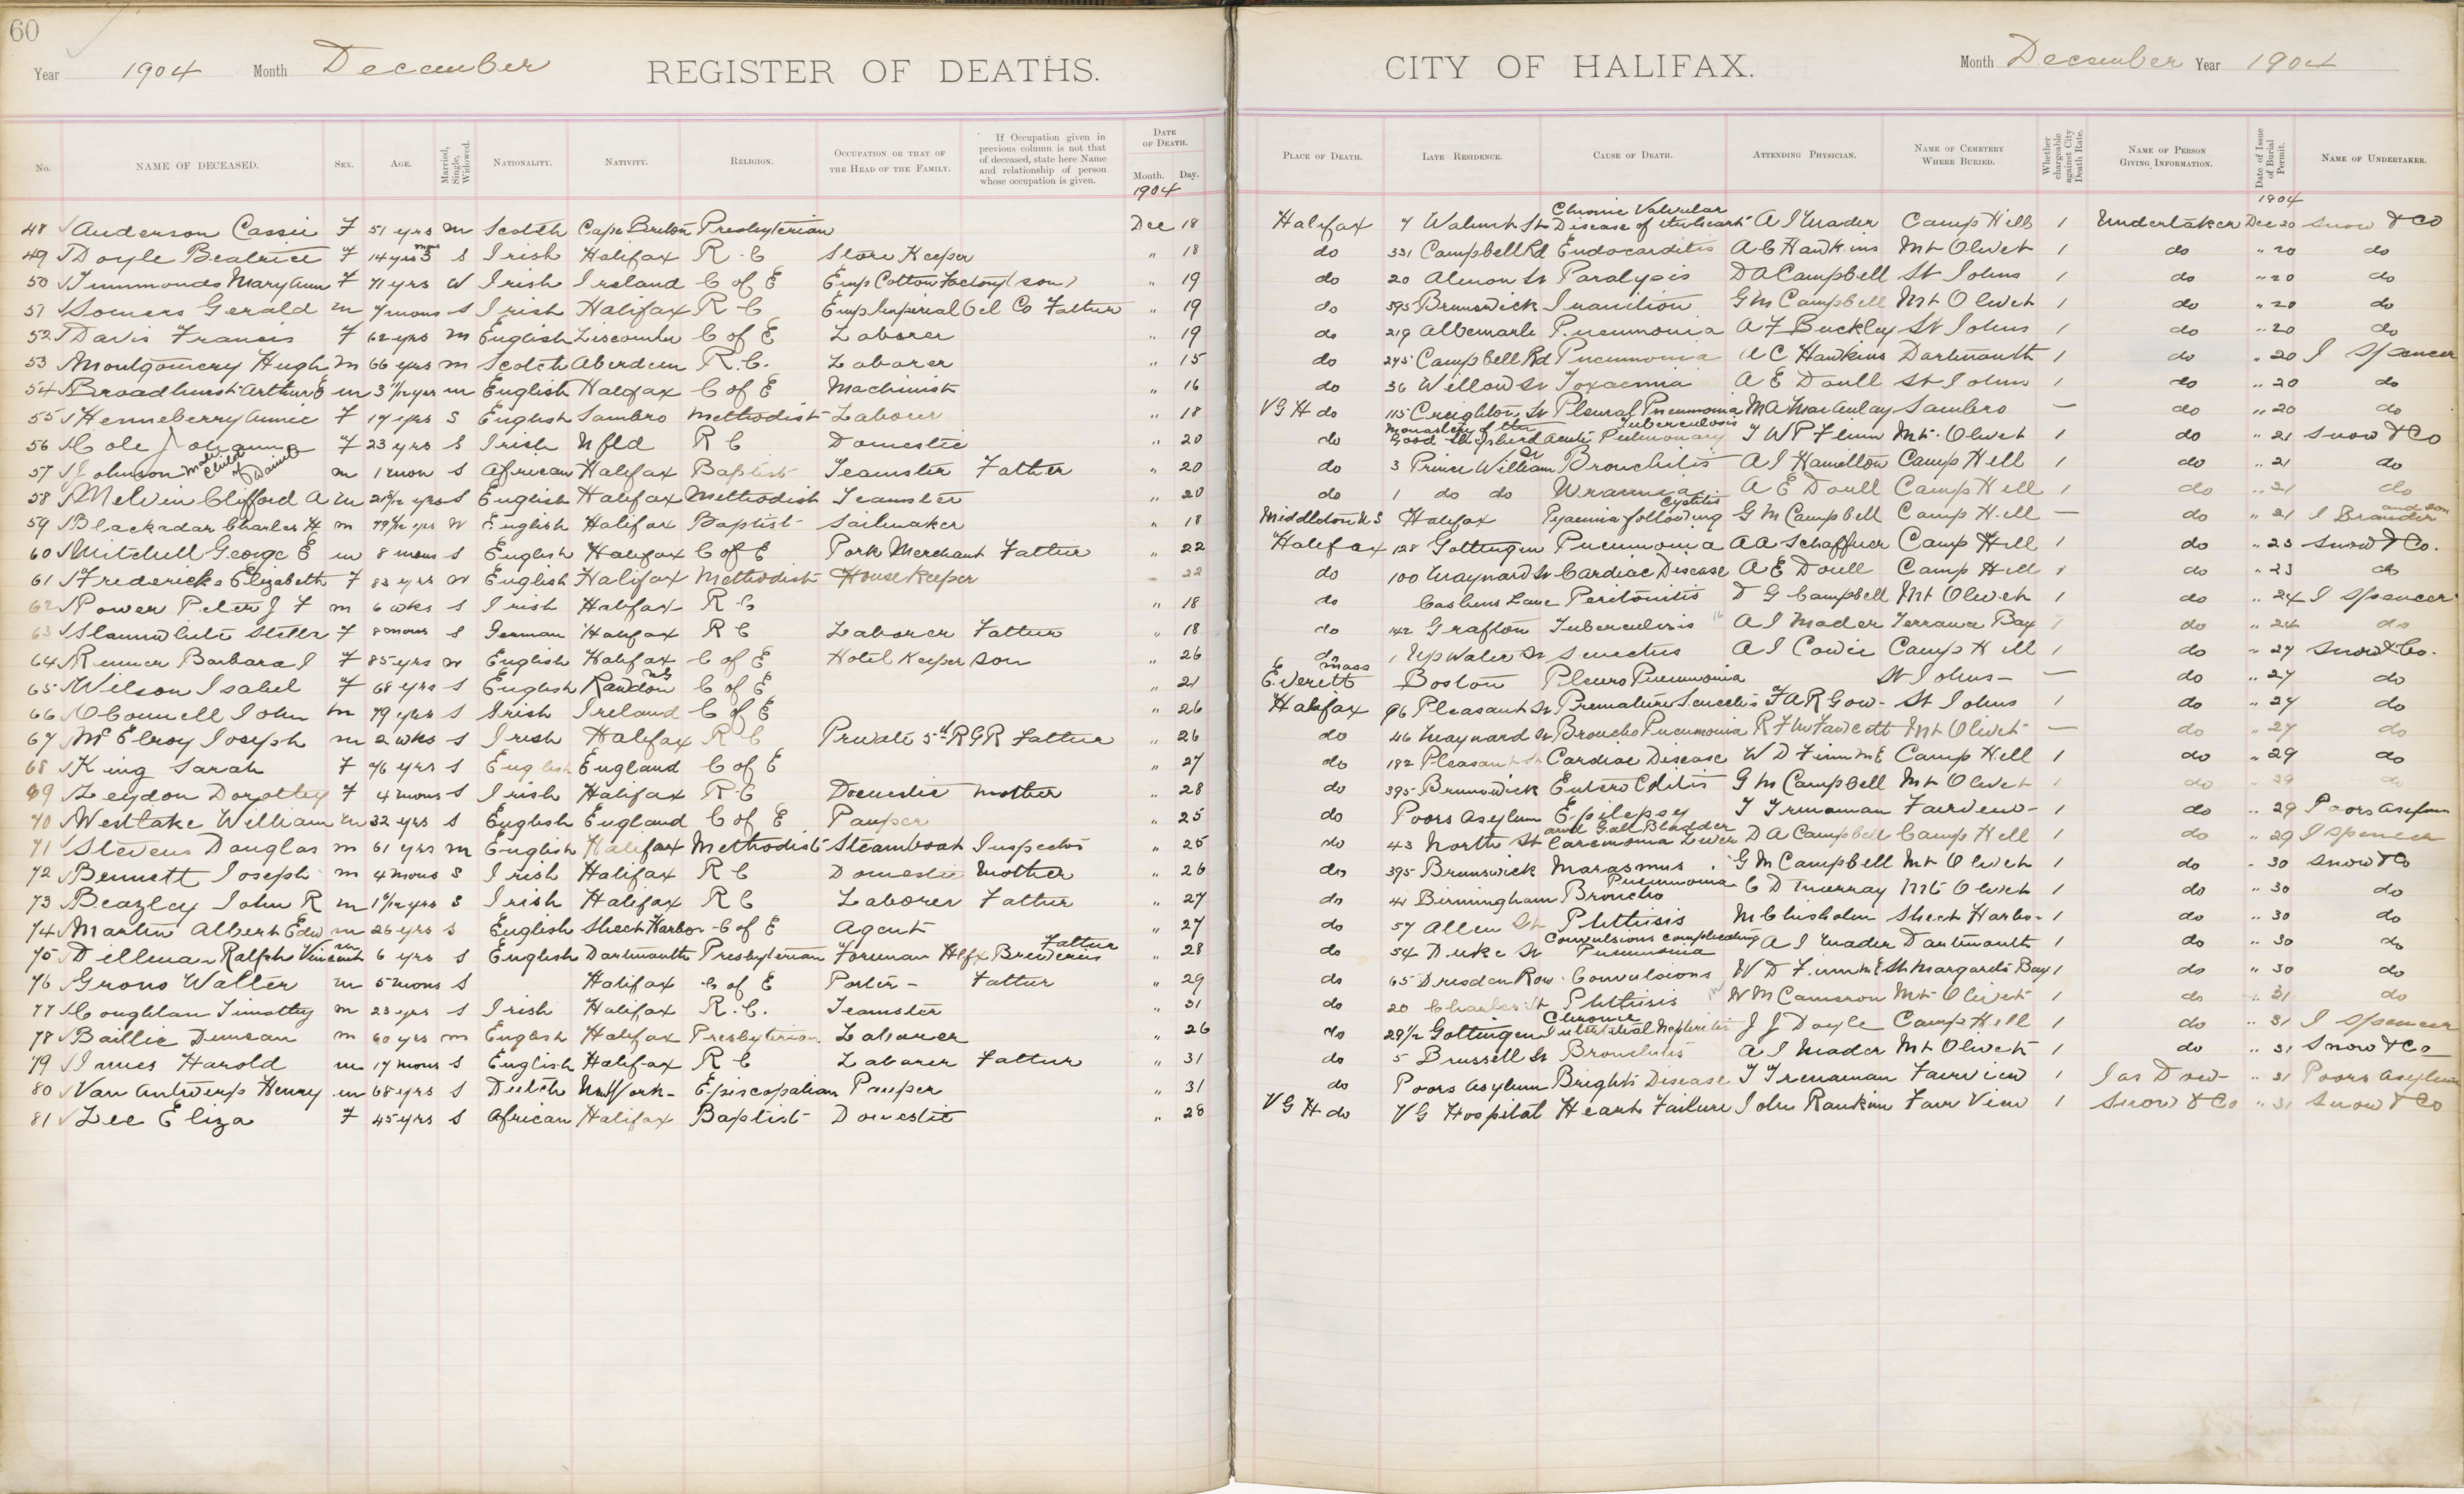 60
Year 1904 Month December REGISTER OF DEATHS. CITY OF HALIFAX. Month December Year 1904
No. NAME OF DECEASED. SEX. AGE. Married, Single, Widowed. NATIONALITY. NATIVITY. RELIGION. OCCUPATION OR THAT OF THE HEAD OF THE FAMILY. If Occupation given in previous column is not that of deceased, state here Name and relationship of person whose occupation is given. DATE OF DEATH. Month. Day. PLACE OF DEATH. LATE RESIDENCE. CAUSE OF DEATH. ATTENDING PHYSICIAN. NAME OF CEMETERY WHERE BURIED. Whether chargeable against City Death Rate. NAME OF PERSON GIVING INFORMATION. Date of Issue of Burial Permit. NAME OF UNDERTAKER.
1904 1904
48 Anderson Cassie F 51 yrs m Scotch Cape Breton Presbyterian Dec 18 Halifax 7 Walnut St Chronic Valvular Disease of the heart A I Mader Camp Hill 1 Undertaker Dec 20 Snow & Co
49 Doyle Beatrice F 14 yrs 3 mos S Irish Halifax R C Store Keeper " 18 do 331 Campbell Rd Endocarditis A C Hawkins Mt Olivet 1 do " 20 do
50 Simmonds Mary Ann F 71 yrs W Irish Ireland C of E Emp Cotton Factory (son) " 19 do 20 Almon St Paralysis D A Campbell St Johns 1 do " 20 do
51 Somers Gerald m 7 mons S Irish Halifax R C Emp Imperial Oil Co Father " 19 do 395 Brunswick Inanition G M Campbell Mt Olivet 1 do " 20 do
52 Davis Francis F 62 yrs m English Liscombe C of E Laborer " 19 do 219 Albemarle Pneumonia A F Buckley St Johns 1 do " 20 do
53 Montgomery Hugh m 66 yrs m Scotch Aberdeen R.C. Laborer " 15 do 275 Campbell Rd Pneumonia A C Hawkins Dartmouth 1 do " 20 I Spencer
54 Broadhurst Arthur E m 3 1/12 yrs m English Halifax C of E Machinist " 16 do 36 Willow St Toxaemia A E Doull St Johns 1 do " 20 do
55 Henneberry Annie F 17 yrs S English Sambro Methodist Laborer " 18 V G H do 115 Creighton St Pleural Pneumonia M A MacAulay Sambro — do " 20 do
56 Cole Johanna F 23 yrs S Irish Nfld R C Domestic " 20 do Monastery of the Good Shepherd Acute Pulmonary Tuberculosis T W P Flinn Mt. Olivet 1 do " 21 Snow & Co
57 Johnson male child of Daniel m 1 mon S African Halifax Baptist Teamster Father " 20 do 3 Prince William St Bronchitis A I Hamilton Camp Hill 1 do " 21 do
58 Melvin Clifford A m 21 yrs S English Halifax Methodist Teamster " 20 do 1 do do Uraemia A E Doull Camp Hill 1 do " 21 do
59 Blackadar Charles H m 79 yrs W English Halifax Baptist Sailmaker " 18 Middleton N S Halifax Pyaemia following Cystitis G M Campbell Camp Hill — do " 21 I Brander and son
60 Mitchell George E m 8 mons S English Halifax C of E Pork Merchant Father " 22 Halifax 128 Gottingen Pneumonia A A Schaffner Camp Hill 1 do " 23 Snow & Co.
61 Fredericks Elizabeth F 83 yrs W English Halifax Methodist House Keeper " 22 do 100 Maynard St Cardiac Disease A E Doull Camp Hill 1 do " 23 do
62 Power Peter J F m 6 wks S Irish Halifax R C " 18 do Cashens Lane Peritonitis D G Campbell Mt Olivet 1 do " 24 I Spencer
63 Slaunwhite Stella F 8 mons S German Halifax R C Laborer Father " 18 do 142 Grafton Tuberculosis A I Mader Terrance Bay do " 24 do
64 Renner Barbara I F 85 yrs W English Halifax C of E Hotel Keeper Son " 26 do 1 Up Water St Senectus A I Cowie Camp Hill 1 do " 27 Snow & Co.
65 Wilson Isabel F 68 yrs S English Rawdon NS C of E " 21 Everett Mass Boston Pleuro Pneumonia St Johns — do " 27 do
66 OConnell John m 79 yrs S Irish Ireland C of E " 26 Halifax 96 Pleasant St Premature Senectus F A R Gow St Johns 1 do " 27 do
67 McElroy Joseph m 2 wks S Irish Halifax R C Private 5th RGR Father " 26 do 46 Maynard St Broncho Pneumonia R F M Fawcett Mt Olivet — do " 27 do
68 King Sarah F 76 yrs S English England C of E " 27 do 182 Pleasant St Cardiac Disease W D Finn M E Camp Hill 1 do " 29 do
69 Leydon Dorothy F 4 mons S Irish Halifax R C Domestic Mother " 28 do 395 Brunswick Entero Colitis G M Campbell Mt Olivet 1 do " 29 do
70 Westlake William m 32 yrs S English England C of E Pauper " 25 do Poors Asylum Epilepsy T Trenaman Fairview 1 do " 29 Poors Asylum
71 Stevens Douglas m 61 yrs m English Halifax Methodist Steamboat Inspector " 25 do 43 North St Carcinoma Liver and Gall Bladder D A Campbell Camp Hill 1 do " 29 I Spencer
72 Bennett Joseph m 4 mons S Irish Halifax R C Domestic Mother " 26 do 395 Brunswick Marasmus G M Campbell Mt Olivet 1 do " 30 Snow & Co
73 Beazley John R m yrs S Irish Halifax R C Laborer Father " 27 do 41 Birmingham Broncho Pneumonia C D Murray Mt Olivet 1 do " 30 do
74 Martin Albert Edw m 26 yrs S English Sheet Harbor C of E Agent " 27 do 57 Allen St Phthisis M Chisholm Sheet Harbor 1 do " 30 do
75 Dillman Ralph Vincent m 6 yrs S English Dartmouth Presbyterian Foreman Hlfx Breweries Father " 28 do 54 Duke St Convulsions complicating Pneumonia A I Mader Dartmouth 1 do " 30 do
76 Grono Walter m 5 mons S Halifax C of E Porter Father " 29 do 65 Dresden Row Convulsions W D Finn M E St Margarets Bay 1 do " 30 do
77 Coughlan Timothy m 23 yrs S Irish Halifax R.C. Teamster " 31 do 20 Charles St Phthisis W M Cameron Mt Olivet 1 do " 31 do
78 Baillie Duncan m 60 yrs m English Halifax Presbyterian Laborer " 26 do 29 1/2 Gottingen Chronic Interstitial Nephritis J J Doyle Camp Hill 1 do " 31 I Spencer
79 James Harold m 17 mons S English Halifax R C Laborer Father " 31 do 5 Brussell St Bronchitis A I Mader Mt Olivet 1 do " 31 Snow & Co
80 Van Antwerp Henry m 68 yrs S Dutch New York Episcopalian Pauper " 31 do Poors Asylum Brights Disease T Trenaman Fairview 1 Jas Dow " 31 Poors Asylum
81 Lee Eliza F 45 yrs S African Halifax Baptist Domestic " 28 V G H do V G Hospital Heart Failure John Rankine Fair View 1 Snow & Co " 31 Snow & Co